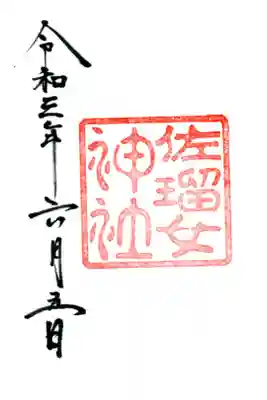 佐瑠女
神社
令和三年六月五日